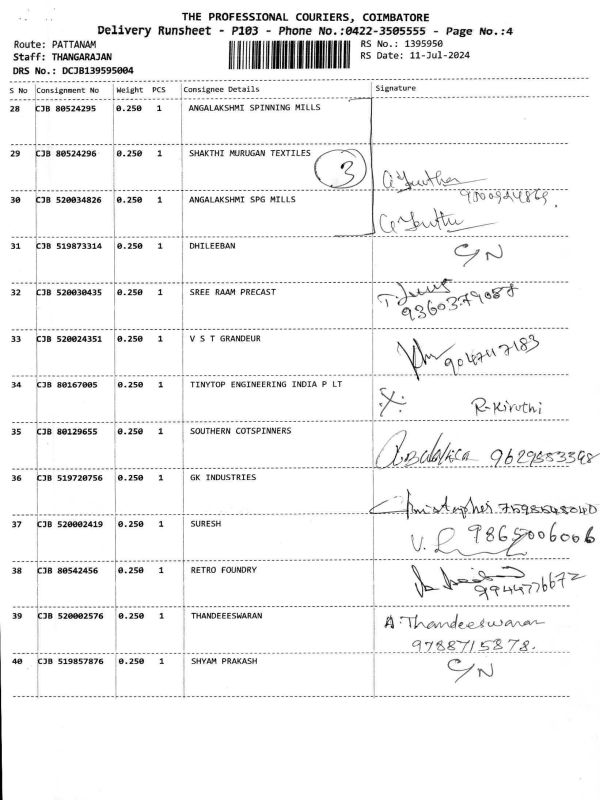 THE PROFESSIONAL COURIERS, COIMBATORE
Delivery Runsheet - P103 - Phone No.:0422-3505555 - Page No.:4
Route: PATTANAM
RS No.: 1395950
Staff: THANGARAJAN
RS Date: 11-Jul-2024
DRS No.: DCJB139595004
S No Consignment No Weight PCS Consignee Details Signature
28 CJB 80524295 0.250 1 ANGALAKSHMI SPINNING MILLS
29 CJB 80524296 0.250 1 SHAKTHI MURUGAN TEXTILES
3
30 CJB 520034826 0.250 1 ANGALAKSHMI SPG MILLS
31 CJB 519873314 0.250 1 DHILEEBAN C/N
32 CJB 520030435 0.250 1 SREE RAAM PRECAST
9360379087
33 CJB 520024351 0.250 1 V S T GRANDEUR
9047417183
34 CJB 80167005 0.250 1 TINYTOP ENGINEERING INDIA P LT
R-Kiruthi
35 CJB 80129655 0.250 1 SOUTHERN COTSPINNERS
9629583398
36 CJB 519720756 0.250 1 GK INDUSTRIES
Christopher
37 CJB 520002419 0.250 1 SURESH
9865006006
38 CJB 80542456 0.250 1 RETRO FOUNDRY
9944776672
39 CJB 520002576 0.250 1 THANDEEESWARAN A.Thandeeswaran
9788715878.
40 CJB 519857876 0.250 1 SHYAM PRAKASH C/N